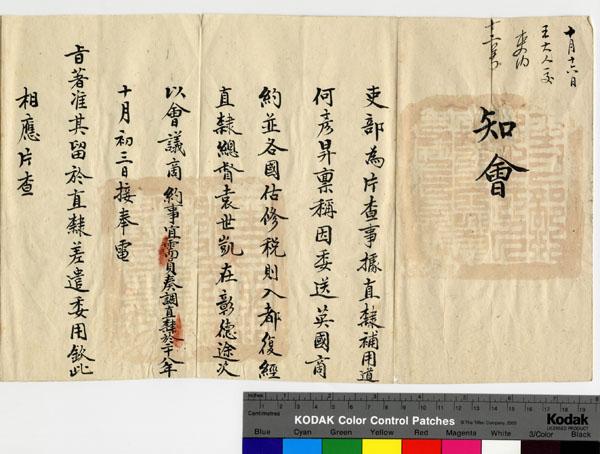 十月十六日
王大人交
知會
吏部為片查事據直隸補用道
何彥昇稟稱因委送英國商
約並各國估修稅則入都復經
直隸總督袁世凱在彰德途次
以會議商約事宜需員奏調直隸於二十八年
十月初三日接奉電
旨著准其留於直隸差遣委用欽此
相應片查
KODAK Color Control Patches
Kodak
LICENSED PRODUCT
Inches
Centimetres
Blue Cyan Green Yellow Red Magenta White 3/Color Black